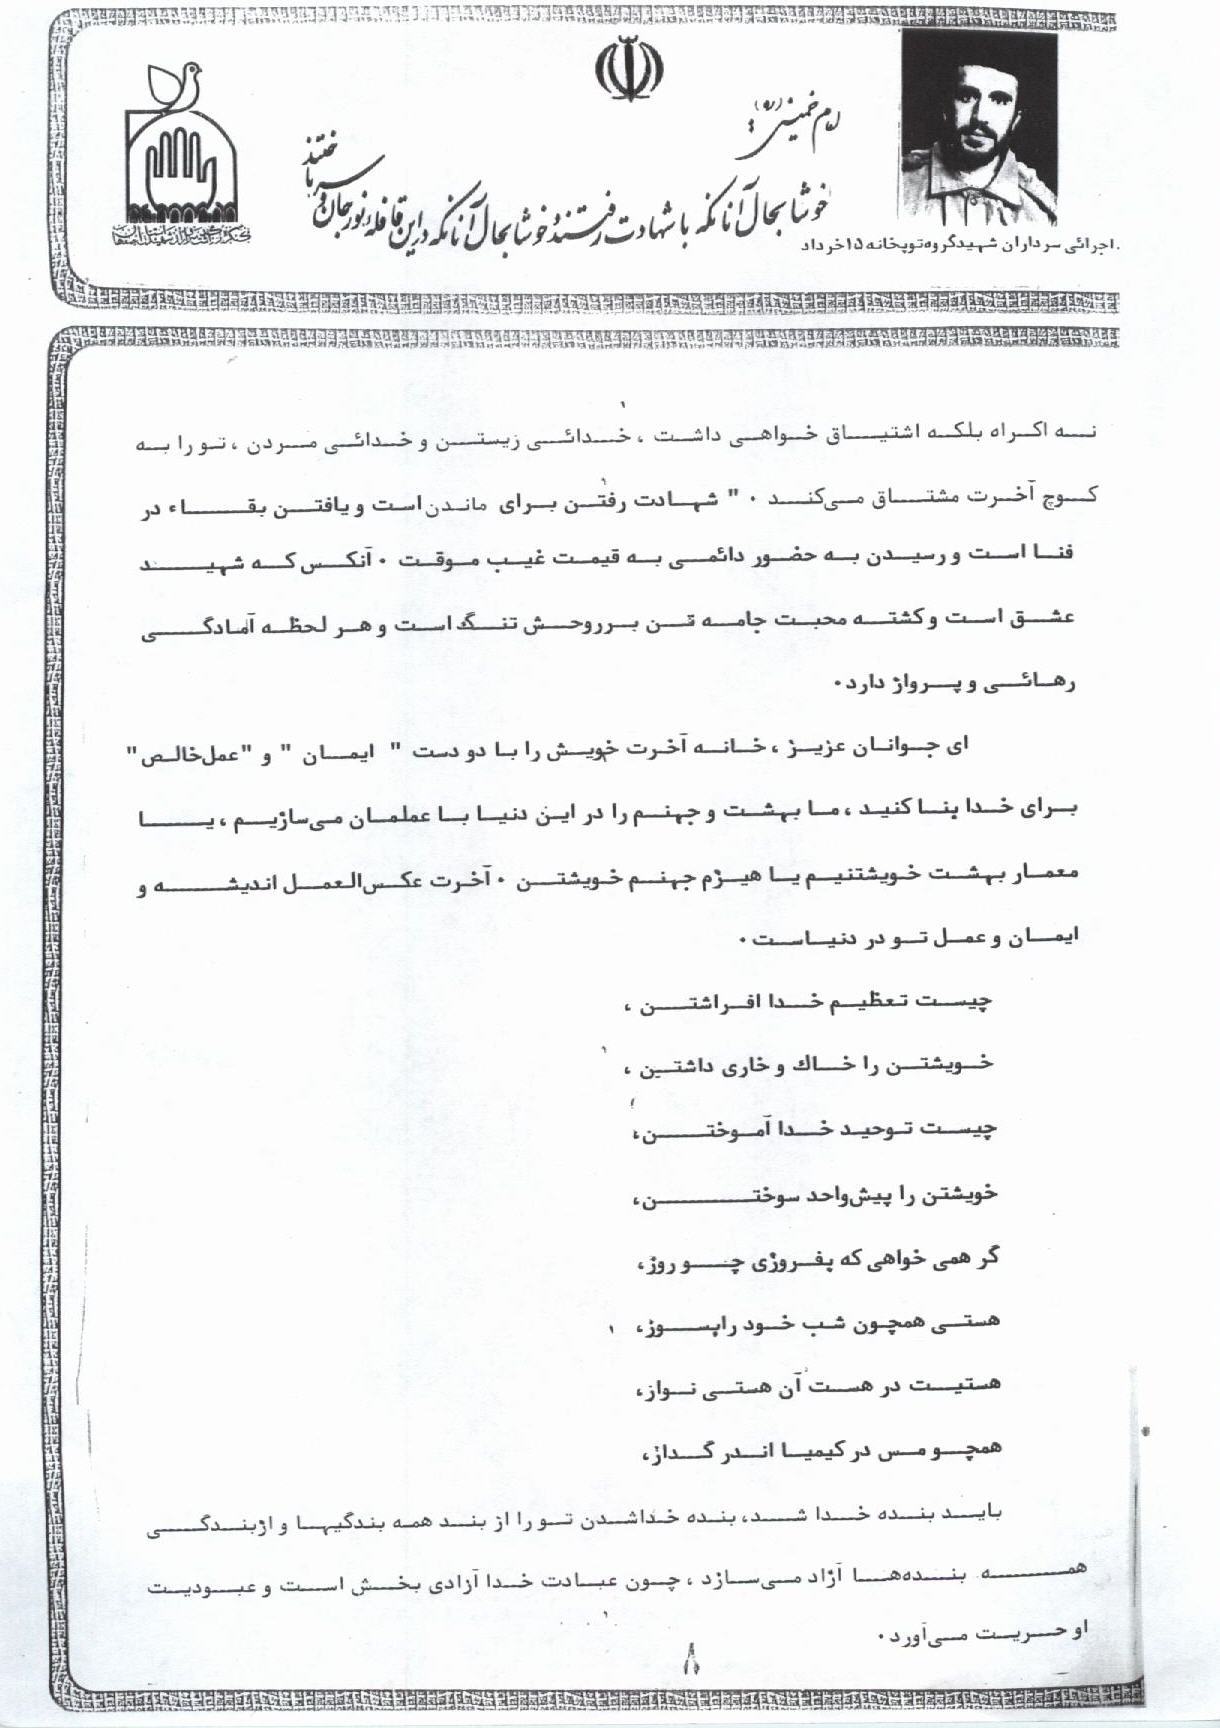 امام خمینی (ره)
خوشا بحال آنانکه با شهادت رفتند خوشا بحال آنانکه در این قافله نور جان و سر باختند
اجرائی سرداران شهید گروه توپخانه ۱۵ خرداد
نه اکراه بلکه اشتیاق خواهی داشت ، خدائی زیستن و خدائی مردن ، تو را به
کوچ آخرت مشتاق می‌کند . " شهادت رفتن برای ماندن است و یافتن بقاء در
فنا است و رسیدن به حضور دائمی به قیمت غیب موقت . آنکس که شهید
عشق است و کشته محبت جامه تن بر روحش تنگ است و هر لحظه آمادگی
رهائی و پرواز دارد .
ای جوانان عزیز ، خانه آخرت خویش را با دو دست " ایمان " و "عمل خالص"
برای خدا بنا کنید ، ما بهشت و جهنم را در این دنیا با عملمان می‌سازیم ، یا
معمار بهشت خویشتنیم یا هیزم جهنم خویشتن . آخرت عکس‌العمل اندیشه و
ایمان و عمل تو در دنیاست .
چیست تعظیم خدا افراشتن ،
خویشتن را خاك و خاری داشتین ،
چیست توحید خدا آموختن،
خویشتن را پیش واحد سوختن،
گر همی خواهی که بفروزی چو روز،
هستی همچون شب خود را بسوز،
هستیت در هست آن هستی نواز،
همچو مس در کیمیا اندر گداز،
باید بنده خدا شد، بنده خدا شدن تو را از بند همه بندگیها و از بندگی
همه بنده‌ها آزاد می‌سازد ، چون عبادت خدا آزادی بخش است و عبودیت
او حریت می‌آورد .
۸